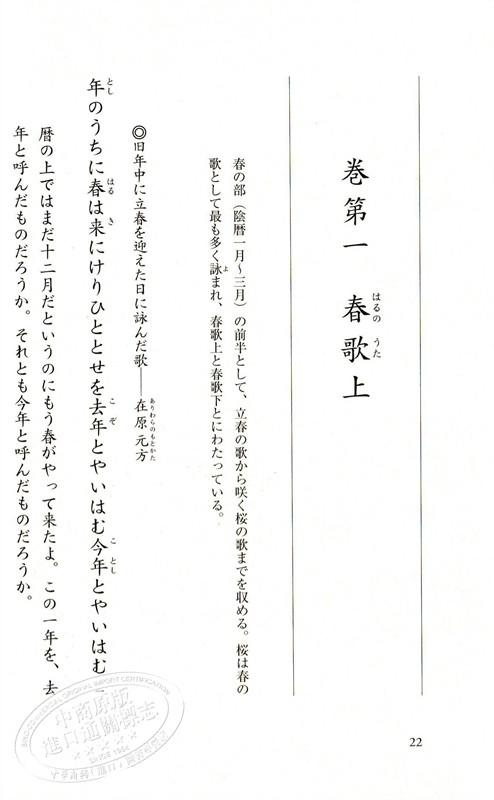 巻第一 春歌上
はるの うた
春の部（陰暦一月～三月）の前半として、立春の歌から咲く桜の歌までを収める。桜は春の
歌として最も多く詠まれ、春歌上と春歌下とにわたっている。
よ
◎旧年中に立春を迎えた日に詠んだ歌――在原元方
ありわらのもとかた
年のうちに春は来にけりひととせを去年とやいはむ今年とやいはむ
とし はる き こぞ ことし
暦の上ではまだ十二月だというのにもう春がやって来たよ。この一年を、去
年と呼んだものだろうか。それとも今年と呼んだものだろうか。
22
中商原版
進口通關標志
SINCE 1994